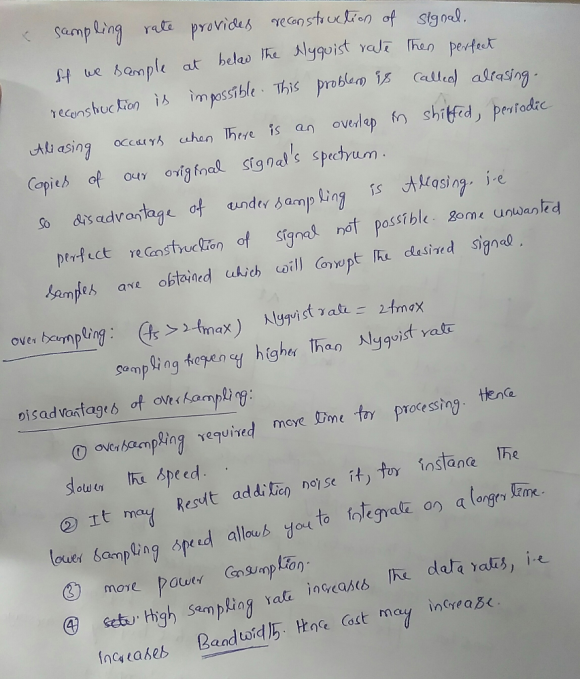 sampling rate provides reconstruction of signal.
If we sample at below the Nyquist rate then perfect
reconstruction is impossible. This problem is called aliasing.
Aliasing occurs when there is an overlap in shifted, periodic
Copies of our original signal's spectrum.
so disadvantage of undersampling is Aliasing. i.e
perfect reconstruction of signal not possible. some unwanted
samples are obtained which will Corrupt the desired signal.
over sampling: (fs > 2fmax) Nyquist rate = 2fmax
sampling frequency higher than Nyquist rate
Disadvantages of oversampling:
① oversampling required more time for processing. Hence
slower the speed.
② It may Result addition noise if, for instance the
lower sampling speed allows you to integrate on a longer time.
③ more power Consumption.
④ High sampling rate increases the data rates, i.e
Increases Bandwidth. Hence Cost may increase.